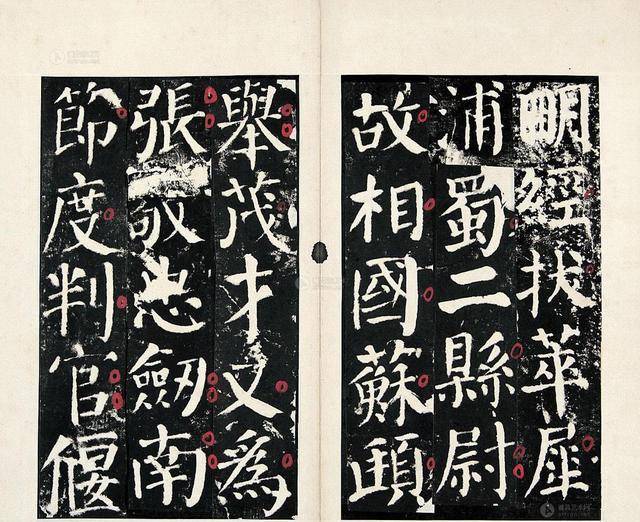 明經拔萃犀
浦蜀二縣尉
故相國蘇頲
舉茂才又爲
張敬忠劒南
節度判官偃